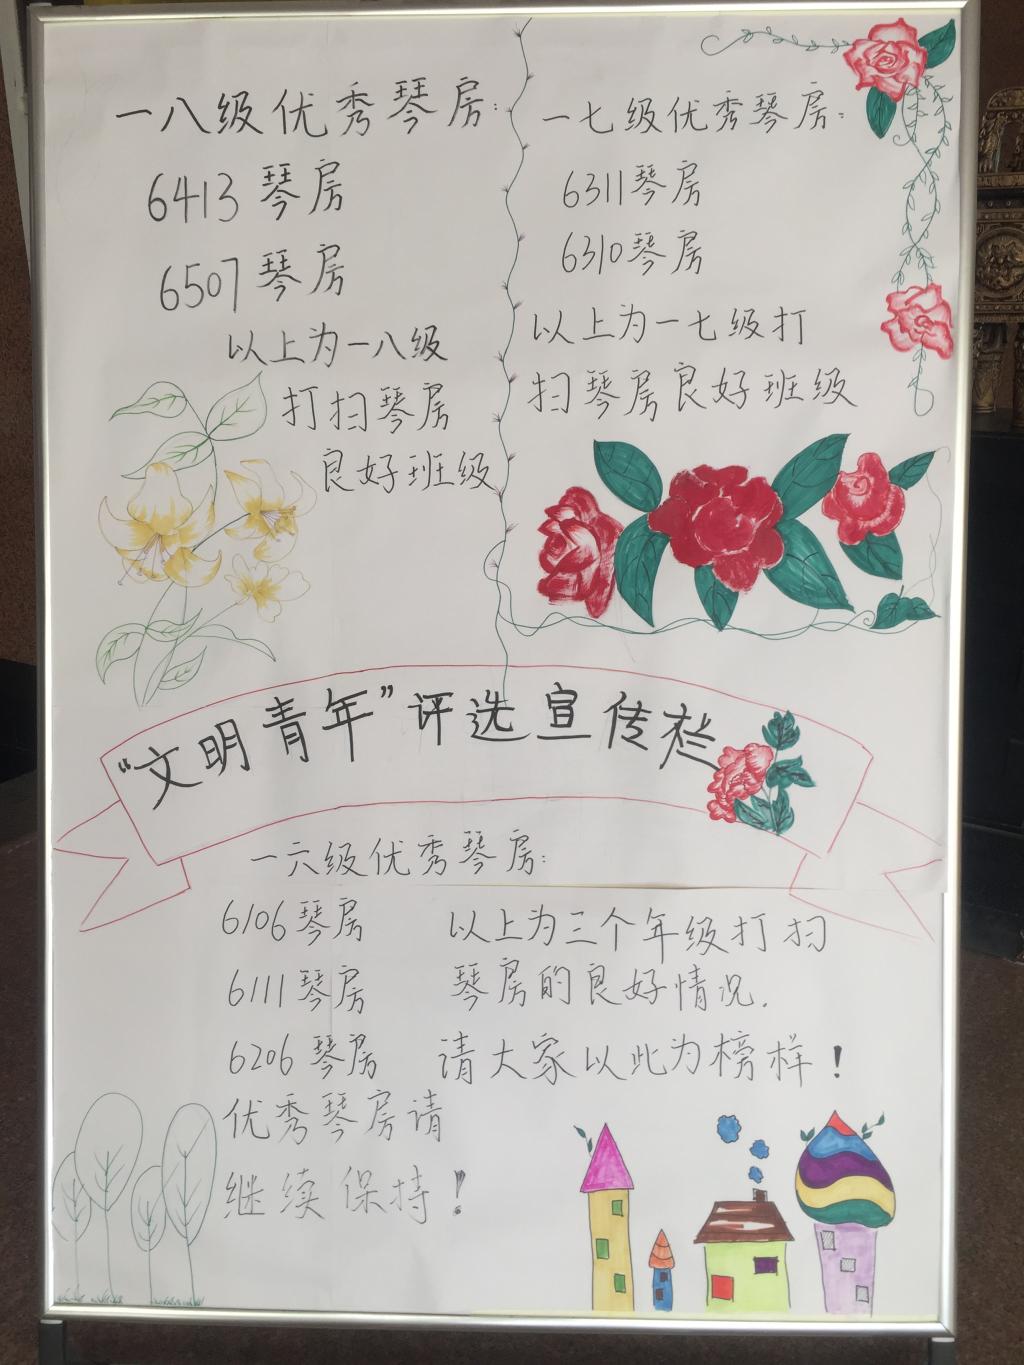 一八级优秀琴房：
6413琴房
6507琴房
以上为一八级
打扫琴房
良好班级
一七级优秀琴房：
6311琴房
6310琴房
以上为一七级打
扫琴房良好班级
“文明青年”评选宣传栏
一六级优秀琴房：
6106琴房
6111琴房
6206琴房
优秀琴房请
继续保持！
以上为三个年级打扫
琴房的良好情况.
请大家以此为榜样！